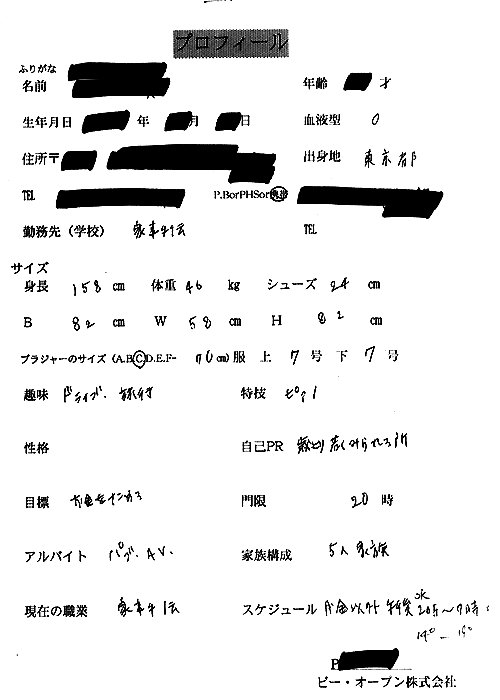 プロフィール
ふりがな
名前 年齢 才
生年月日 年 月 日 血液型 O
住所〒 出身地 東京都
TEL P.BorPHSor携帯
勤務先（学校） 家事手伝 TEL
サイズ
身長 158 cm 体重 46 kg シューズ 24 cm
B 82 cm W 58 cm H 82 cm
ブラジャーのサイズ（A.B.C.D.E.F- 70 cm) 服 上 7 号 下 7 号
趣味 ドライブ、旅行 特技 ピアノ
性格 自己PR
目標 お金をためる 門限 20 時
アルバイト AV. 家族構成 5人家族
現在の職業 家事手伝 スケジュール
ビー・オープン株式会社